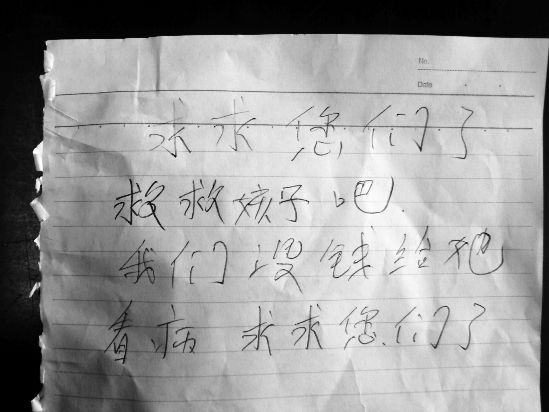 No.
Date
求求您们了
救救孩子吧.
我们没钱给他
看病 求求您们了